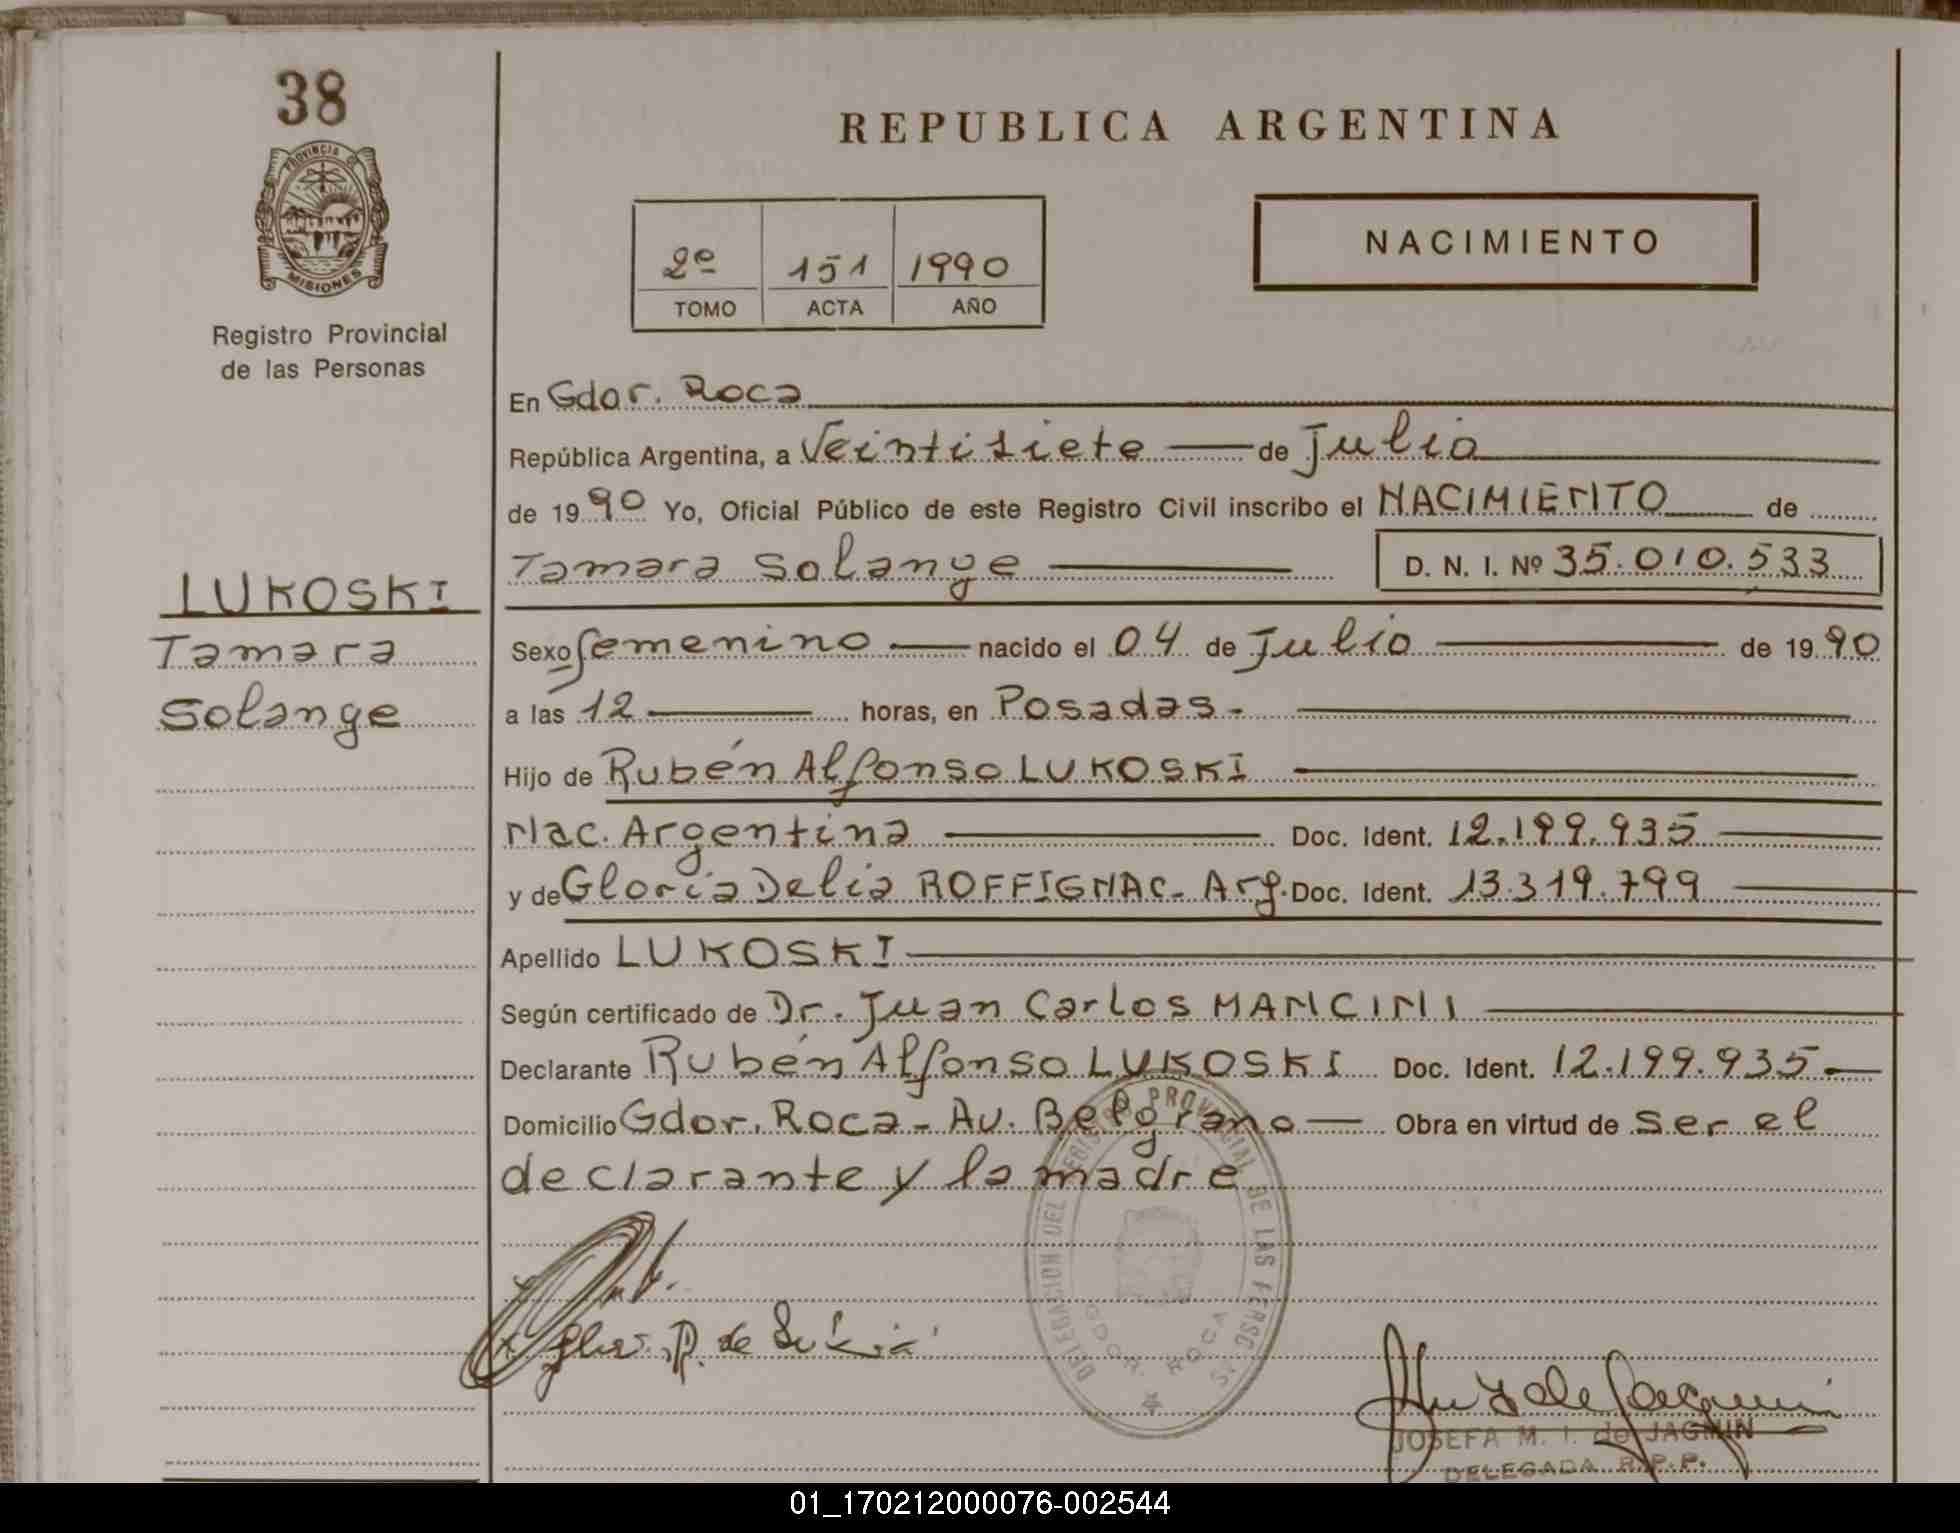 38
PROVINCIA DE
MISIONES
Registro Provincial
de las Personas
LUKOSKI
Tamara
Solange
REPUBLICA ARGENTINA
2º 151 1990
TOMO ACTA AÑO
NACIMIENTO
En Gdor. Roca
República Argentina, a Veintisiete de Julio
de 1990 Yo, Oficial Público de este Registro Civil inscribo el NACIMIENTO de
Tamara Solange D. N. I. Nº 35.010.533
Sexo femenino nacido el 04 de Julio de 1990
a las 12 horas, en Posadas.
Hijo de Rubén Alfonso LUKOSKI
Nac. Argentina Doc. Ident. 12.199.935
y de Gloria Delia ROFFIGNAC - Arg. Doc. Ident. 13.319.799
Apellido LUKOSKI
Según certificado de Dr. Juan Carlos MANCINI
Declarante Rubén Alfonso LUKOSKI Doc. Ident. 12.199.935
Domicilio Gdor. Roca - Av. Belgrano Obra en virtud de ser el
declarante y la madre
DELEGACION DEL REGISTRO PROVINCIAL DE LAS PERSONAS
GDOR. ROCA
JOSEFA M. I. de JAGMIN
DELEGADA R.P.P.
01_170212000076-002544